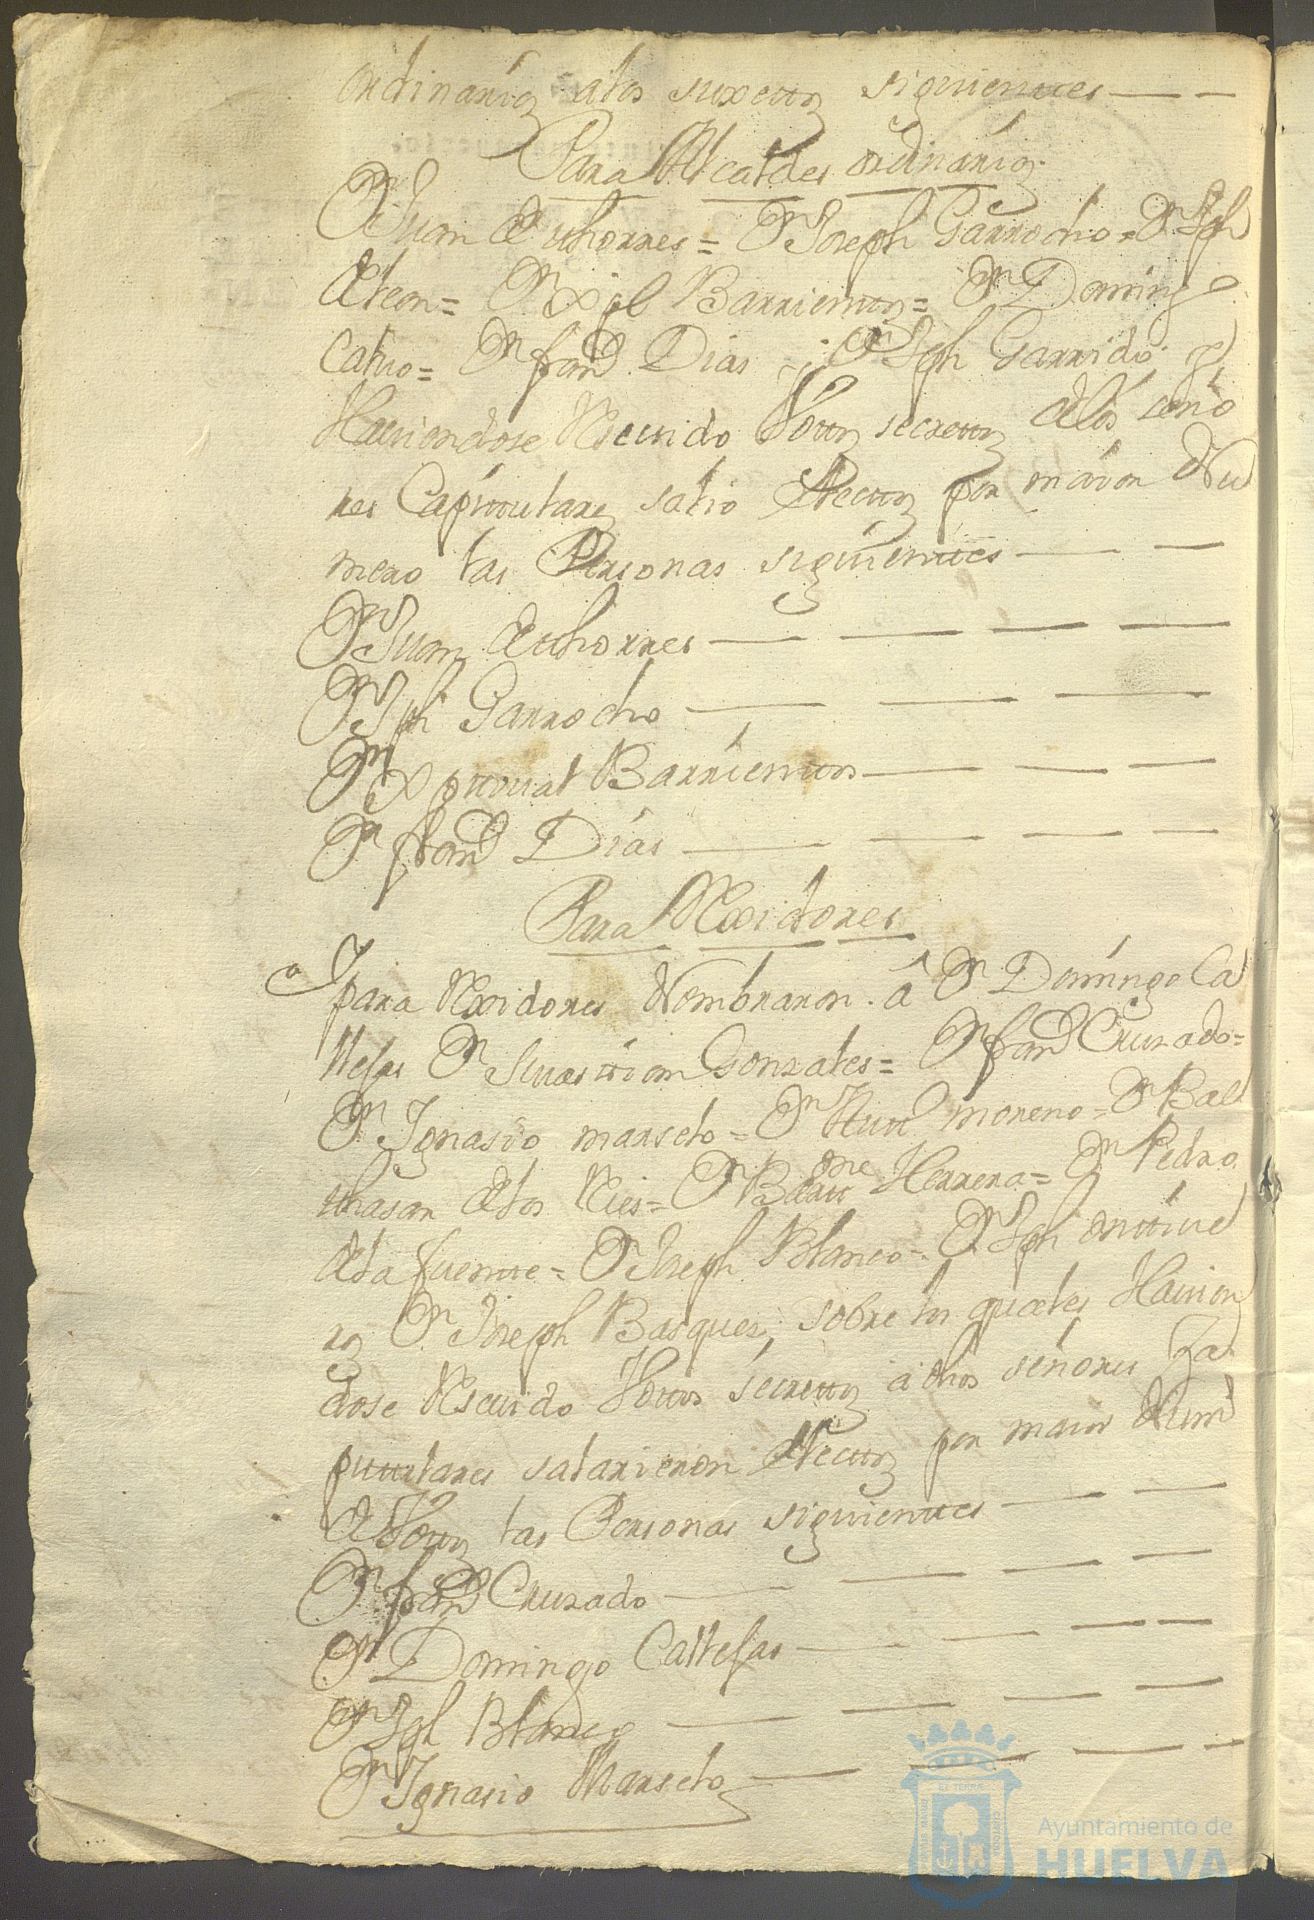 ordinarios alos suxettos siguienttes
Para Alcaldes ordinarios
Dn Juan de thorres = Dn Joseph Garrocho = Dn Jph
de leon = Dn Xpl Barrienttos = Dn Domingo
Calvo = Dn franco Dias = Dn Jph Garrido; y
Haviendose Resevido Vottos secrettos de los seño
res Capittulares salio electtos por maior Nu
mero las Personas siguienttes
Dn Juan de thorres
Dn Jph Garrocho
Dn Xpttoval Barrienttos
Dn franco Dias
Para Rexidores
Y para Rexidores Nombraron a Dn Domingo Ca
llejas Dn Sevasttian Gonzales = Dn franco Cruzado =
Dn Ignasio marselo = Dn moreno = Dn Bal
thasar de los Reies = Dn Bartme Herrera = Dn Pedro
de la fuentte = Dn Joseph Blanco = Dn Jph onttive
ros Dn Joseph Basques; sobre los quales Havien
dose Resevido Vottos secrettos a dhos señores Ca
pittulares salieron electtos por maior Numo
de Vottos las Personas siguienttes
Dn franco Cruzado
Dn Domingo Callejas
Dn Jph Blanco
Dn Ignasio Marselo
Ayuntamiento de
HUELVA